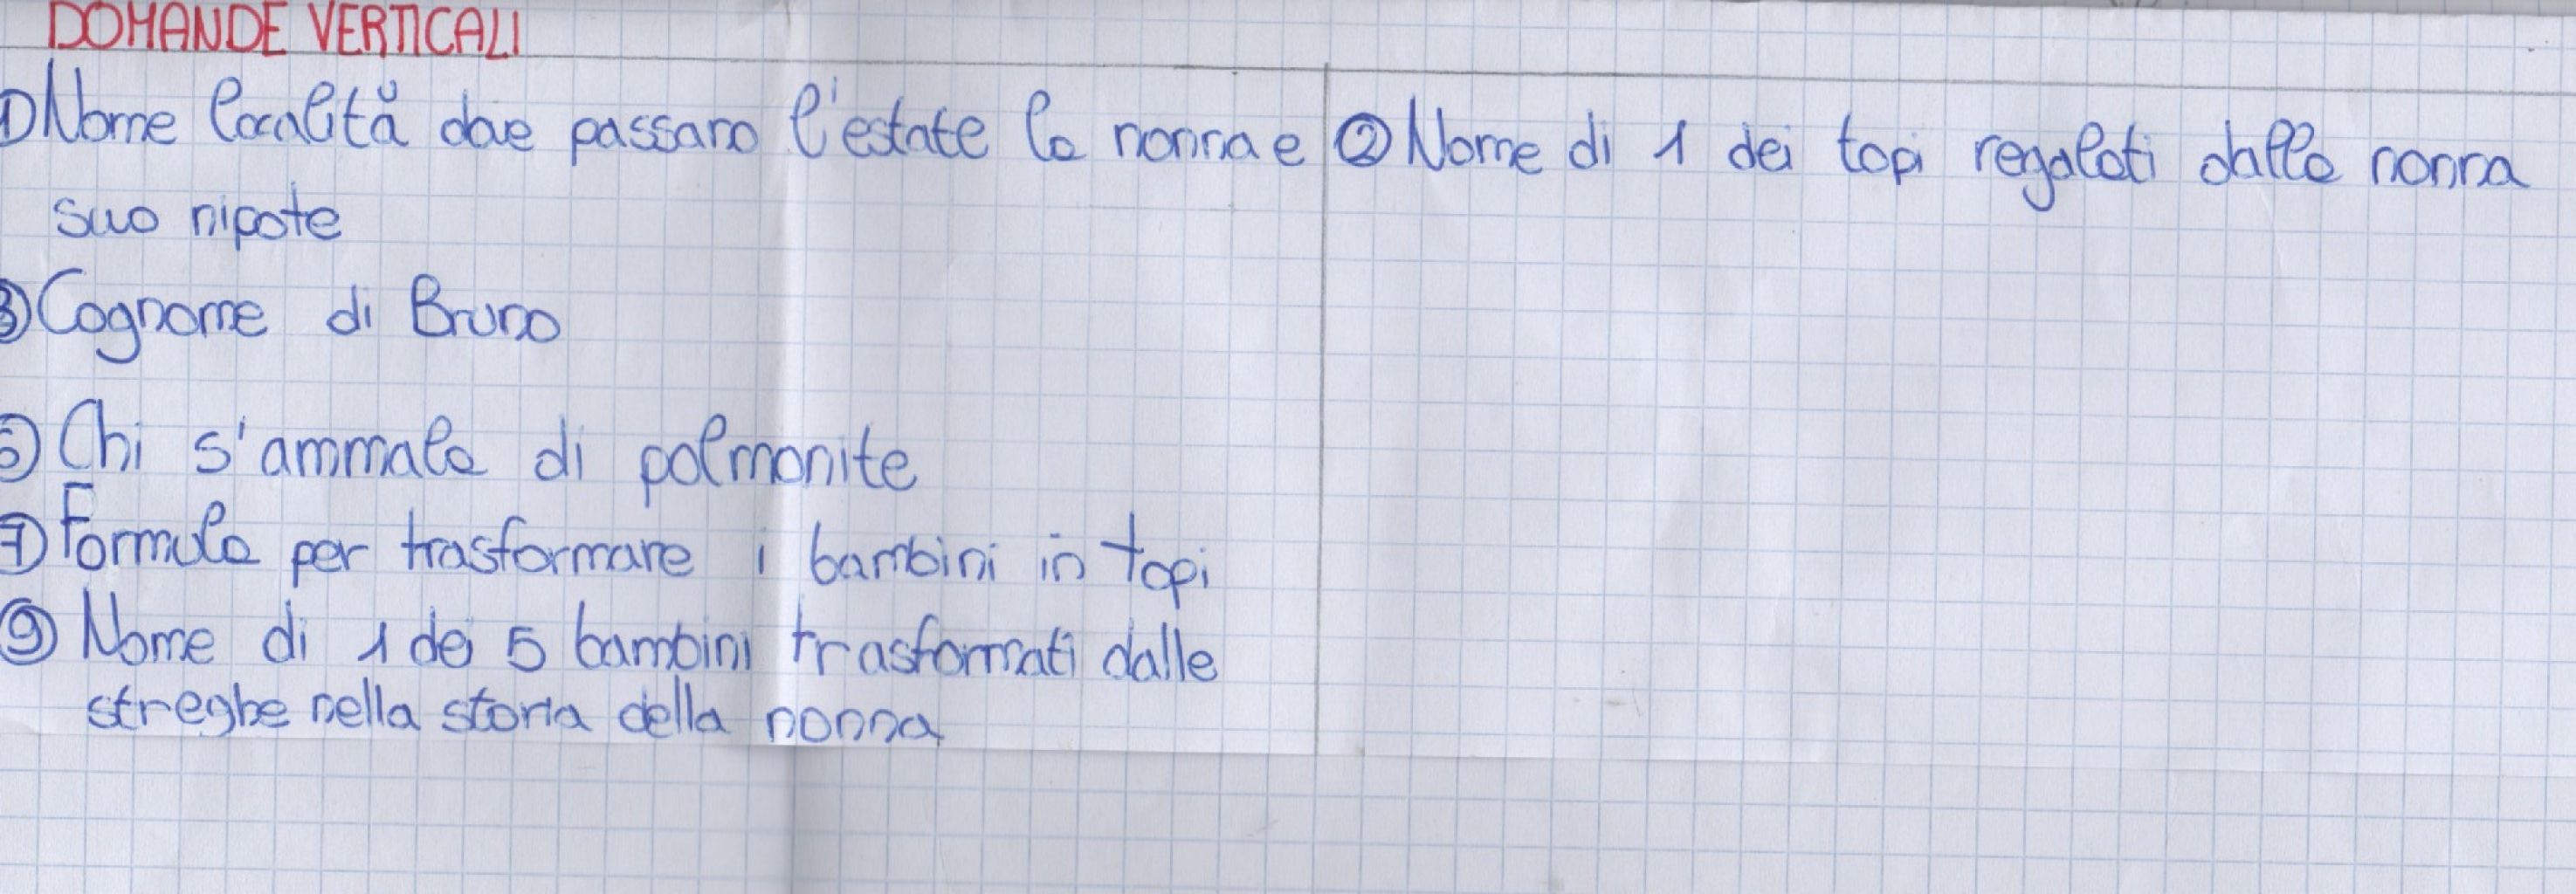 DOMANDE VERTICALI
1) Nome località dove passano l'estate la nonna e
suo nipote
2) Nome di 1 dei topi regalati dalla nonna
3) Cognome di Bruno
Chi s'ammala di polmonite
7) Formula per trasformare i bambini in topi
9) Nome di 1 dei 5 bambini trasformati dalle
streghe nella storia della nonna